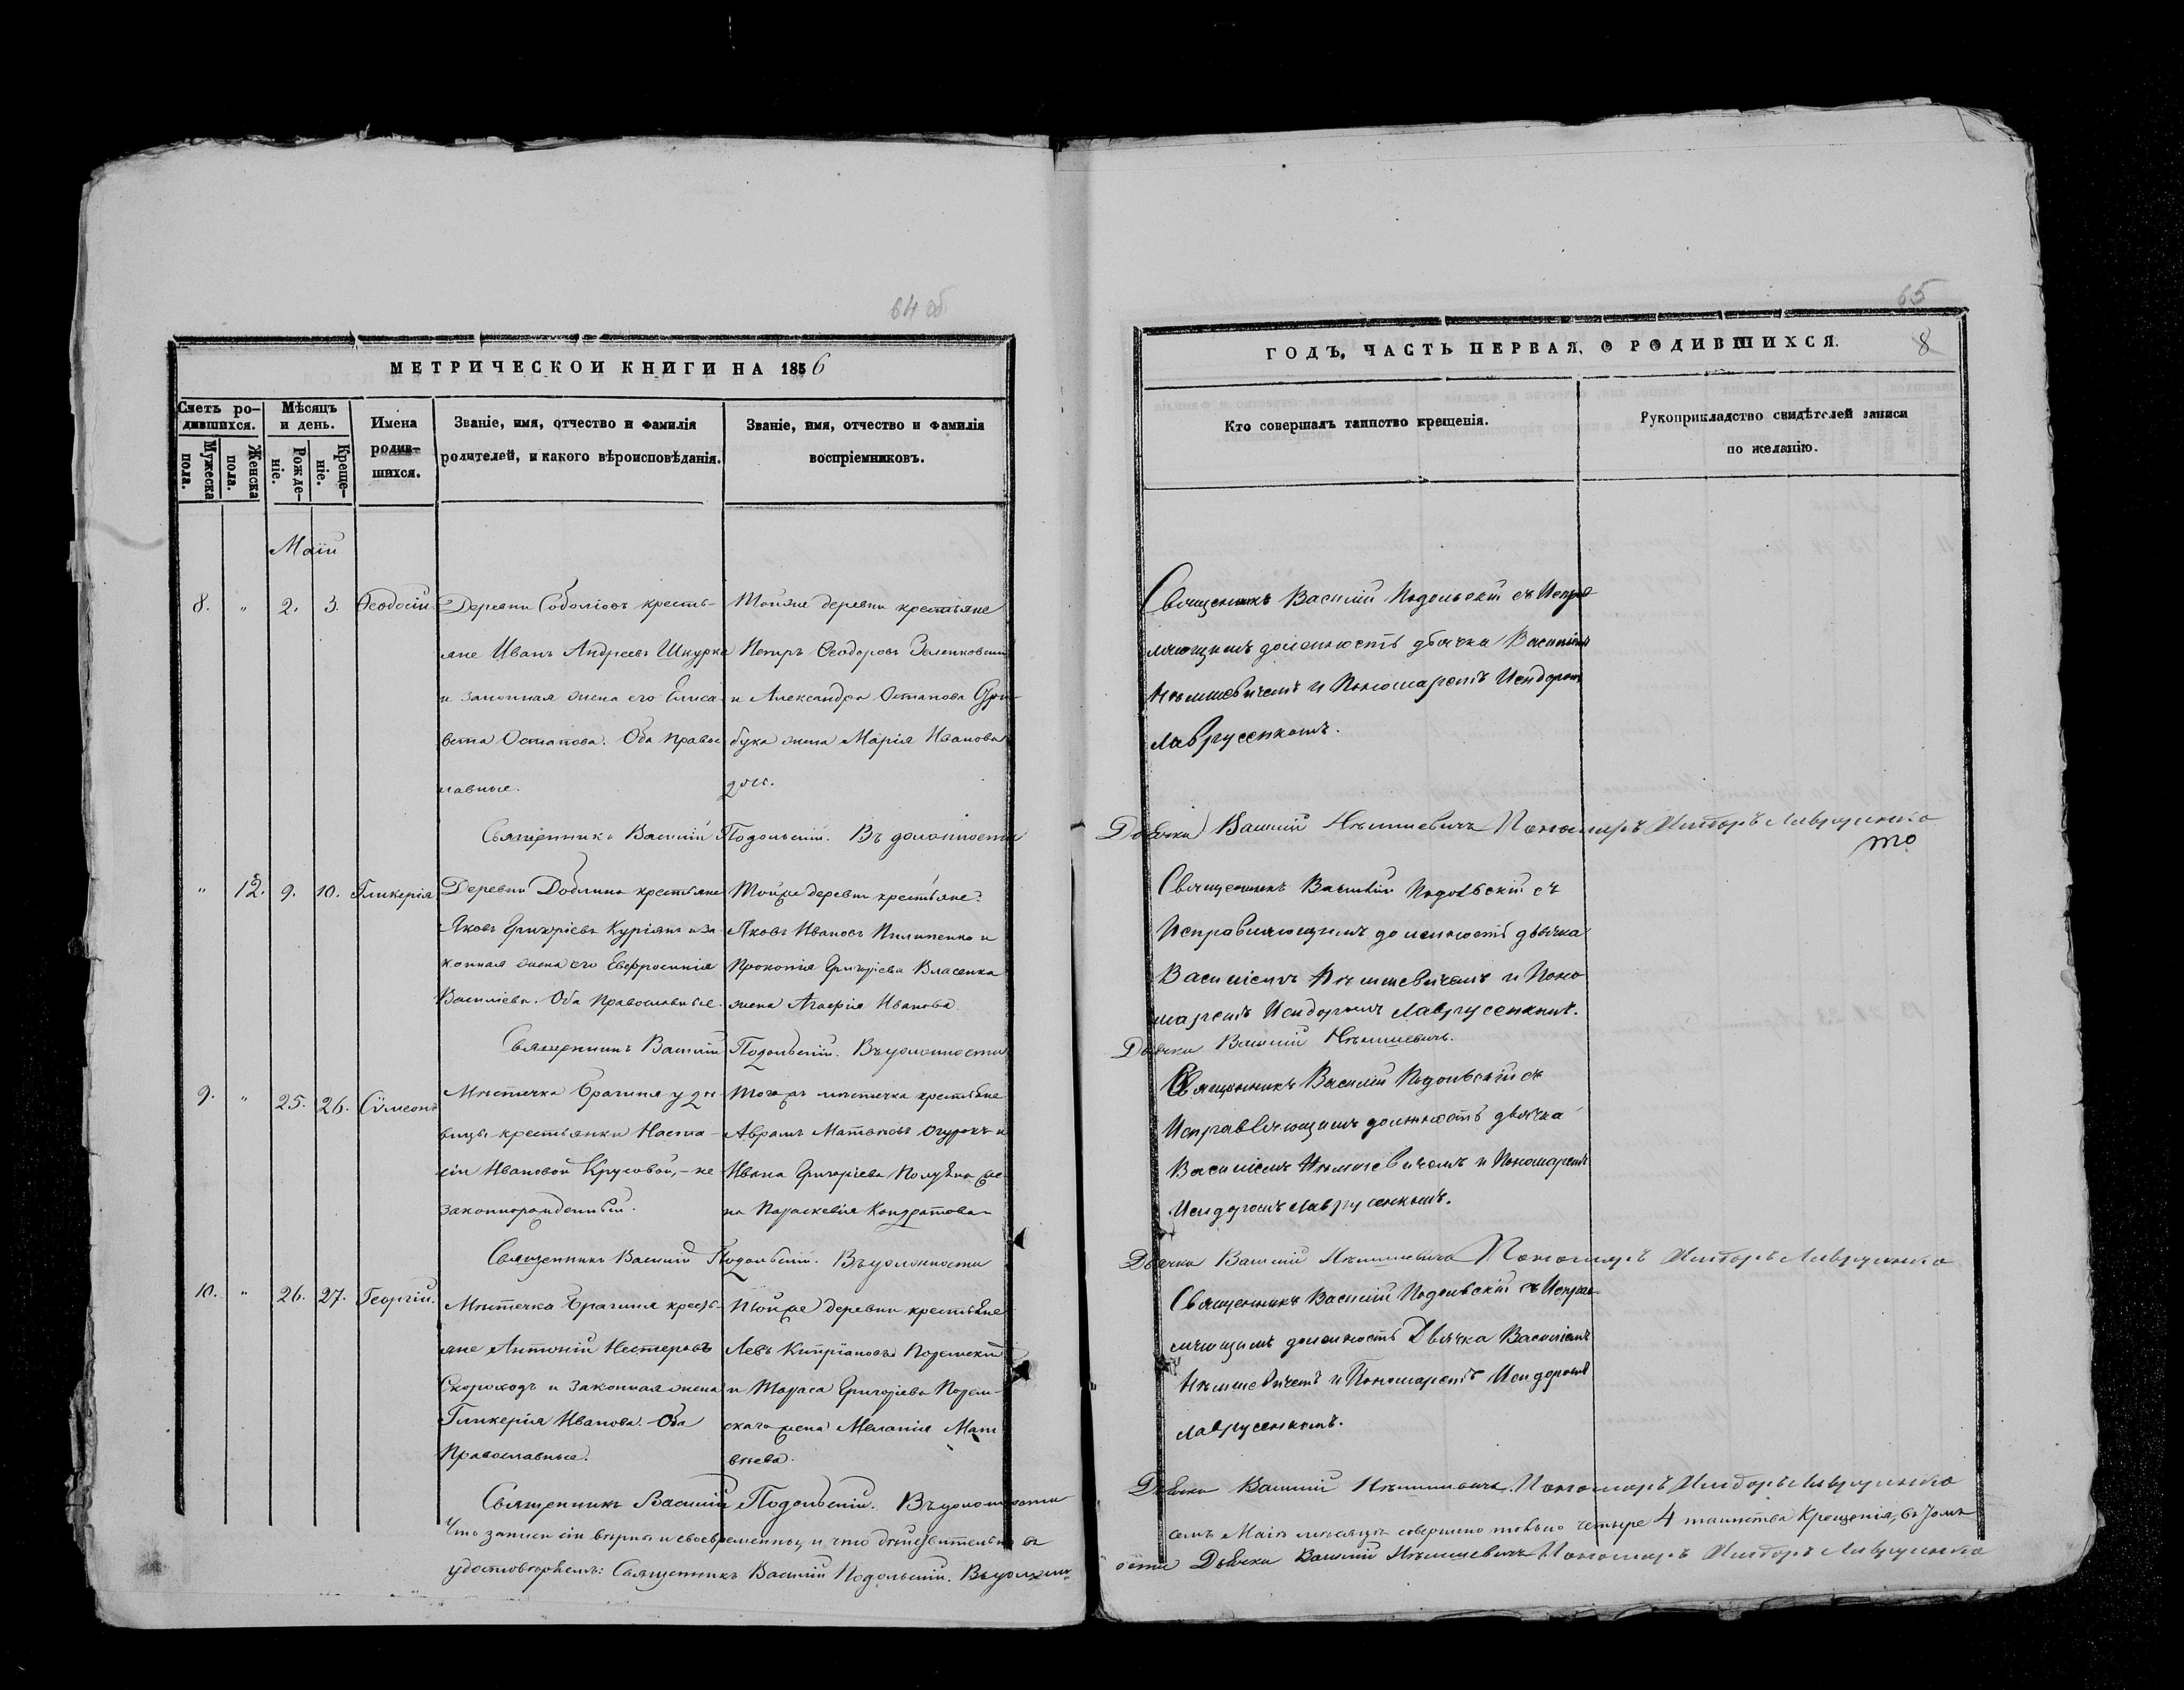 64 об
МЕТРИЧЕСКОЙ КНИГИ НА 1856
Счетъ ро-
дившихся.
Мужеска
пола.
Женска
пола.
Мѣсяцъ
и день.
Рожде-
ніе.
Креще-
ніе.
Имена
родив-
шихся.
Званіе, имя, отчество и фамилія
родителей, и какого вѣроисповѣданія.
Званіе, имя, отчество и фамилія
воспріемниковъ.
Маія
8. " 2. 3. Ѳеодосій
Деревни Соболіовъ кресть-
яне Иванъ Андреевъ Шкурка
и законная жена его Елиса-
вета Остапова. Оба правос
лавные.
Тойже деревни крестьяне
Петръ Ѳеодоровъ
и Александра Остапова
бука жена Марія Иванова
Священникъ Василій Подольскій. Въ должности
" 12. 9. 10. Гликерія
Деревни крестьяне
Яковъ Григоріевъ и за
конная жена его Евфросинія
Василіева. Оба православные.
Тойже деревни крестьяне:
Яковъ Ивановъ Пилипенко и
Прокопія Григоріева Власенка
жена Агафія Иванова.
Священникъ Василій Подольскій. Въ должности
9. " 25. 26. Сѵмеонъ
Мѣстечка Брагиня у дѣ-
вицы крестьянки Наста-
сіи Ивановой Круковой, – не
законнорожденный.
Тогожъ мѣстечка крестьяне
Аврамъ Матвѣевъ Огурокъ и
Ивана Григоріева же
на Параскевія Кондратова
Священникъ Василій Подольскій. Въ должности
10. " 26. 27. Георгій.
Мѣстечка Брагиня кресть-
яне Антоній Нестеровъ
Скороходъ и законная жена
Гликерія Иванова. Оба
Православные.
Тойже деревни крестьяне
Левъ Кипріановъ
и Тараса Григоріева
скаго жена Меланія Мат
вѣева.
Священникъ Василій Подольскій. Въ должности
Что записи сіи вѣрны и своевременны, и что дѣйствительно въ
удостовѣряемъ: Священникъ Василій Подольскій. Въ должн
65
ГОДЪ, ЧАСТЬ ПЕРВАЯ, О РОДИВШИХСЯ.
8
Кто совершалъ таинство крещенія.
Рукоприкладство свидѣтелей записи
по желанію.
Священникъ Василій Подольскій съ Исправ
ляющимъ должность дьячка Василіемъ
Нѣмшевичемъ и Пономаремъ Исидоромъ
Лаврусенкомъ.
Дьячка Василій Нѣмшевичъ Пономарь Исидоръ Лаврусенко
Священникъ Василій Подольскій съ
Исправляющимъ должность дьячка
Василіемъ Нѣмшевичемъ и Поно
маремъ Исидоромъ Лаврусенкомъ.
Дьячка Василій Нѣмшевичъ.
Священникъ Василій Подольскій съ
Исправляющимъ должность дьячка
Василіемъ Нѣмшевичемъ и Пономаремъ
Исидоромъ Лаврусенкомъ.
Дьячка Василій Нѣмшевичъ Пономарь Исидоръ Лаврусенко
Священникъ Василій Подольскій съ Исправ-
ляющимъ должность Дьячка Василіемъ
Нѣмшевичемъ и Пономаремъ Исидоромъ
Лаврусенкомъ.
Дьячка Василій Нѣмшевичъ. Пономарь Исидоръ Лаврусенко
семъ Маіѣ мѣсяцѣ совершено только четыре 4 таинства Крещенія, въ томъ
ости Дьячка Василій Нѣмшевичъ Пономарь Исидоръ Лаврусенко